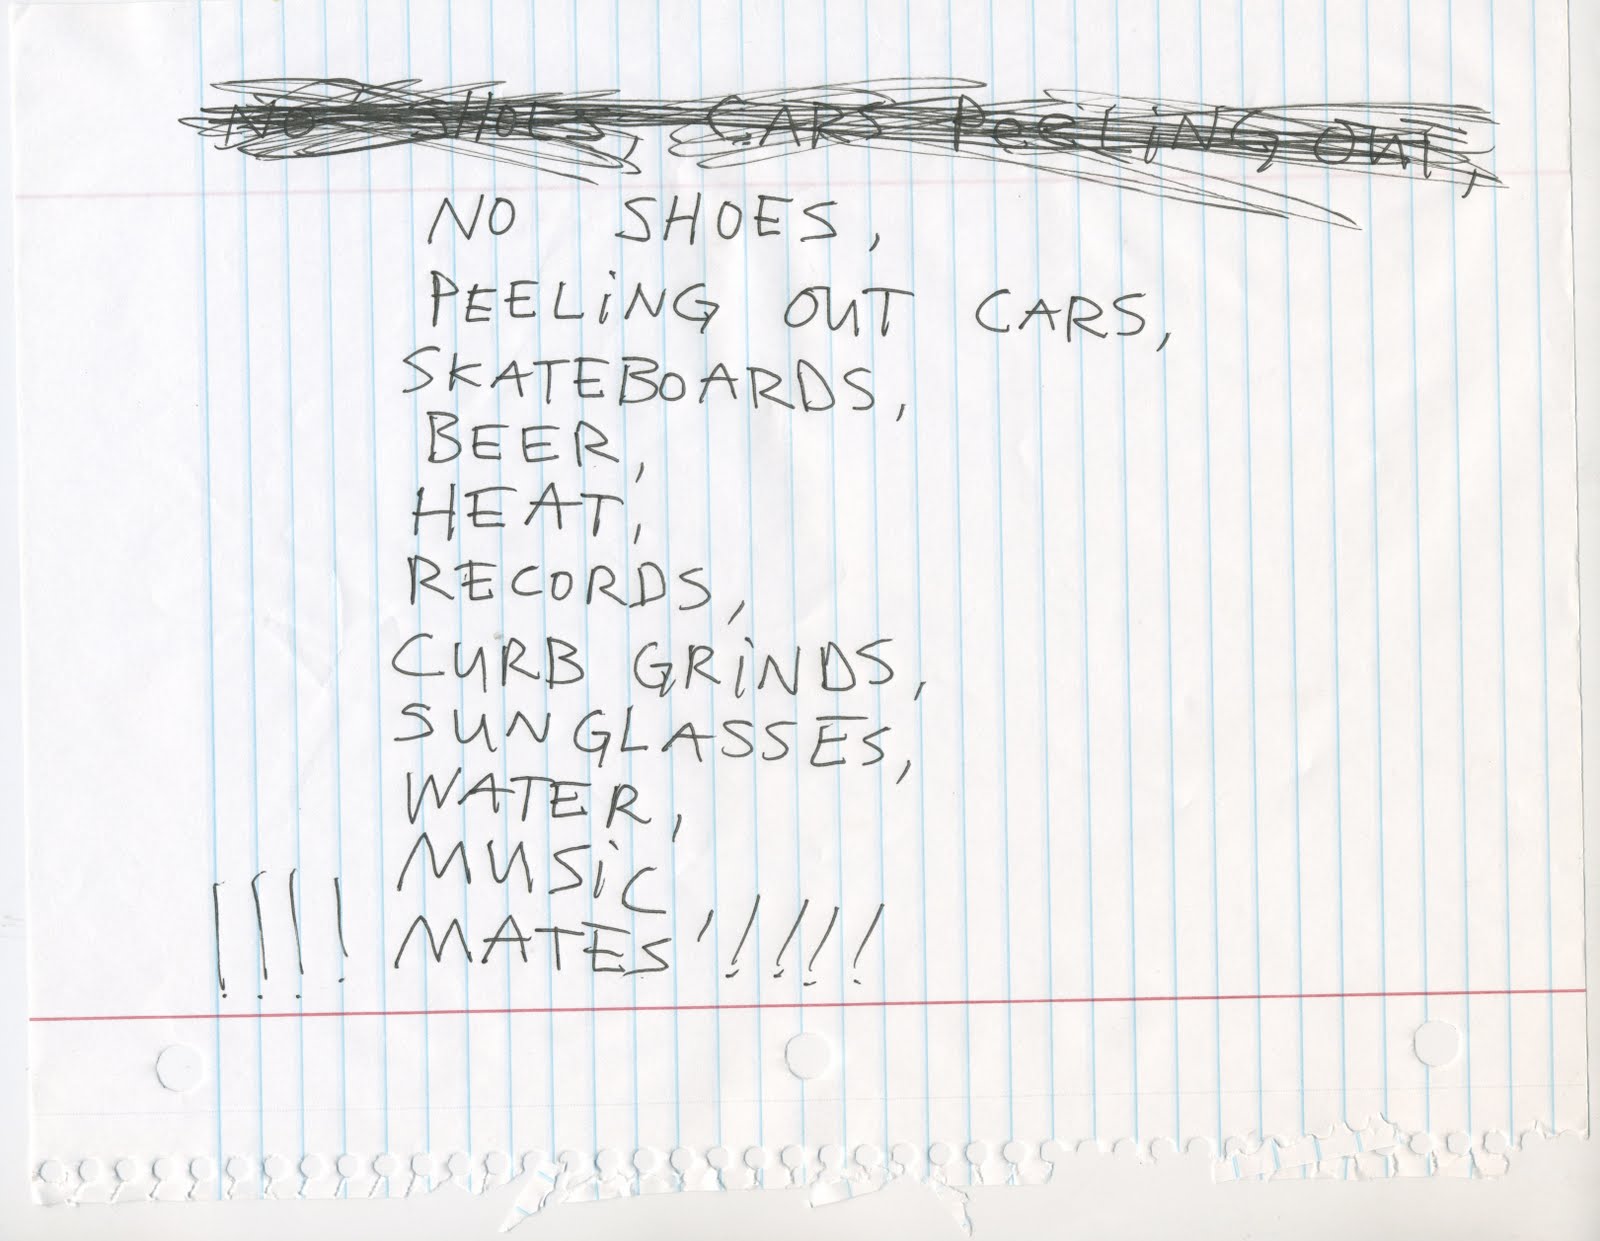 NO SHOES, CARS PEELING OUT,
NO SHOES,
PEELING OUT CARS,
SKATEBOARDS,
BEER,
HEAT,
RECORDS,
CURB GRINDS,
SUNGLASSES,
WATER,
MUSIC
!!!! MATES '!!!!